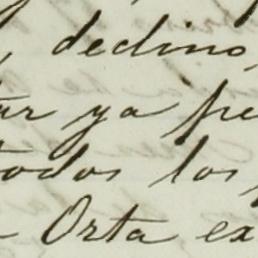 , declino,
ar ya pe
todos los
Orta ex